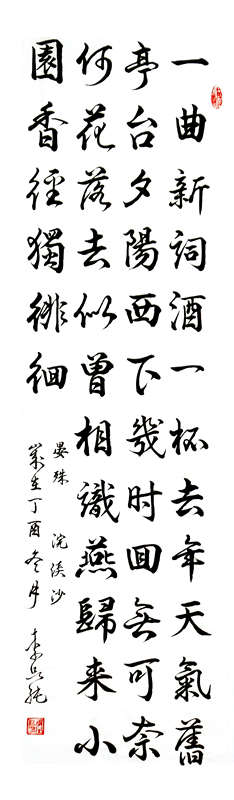 一曲新詞酒一杯去年天氣舊
亭台夕陽西下幾时回無可奈
何花落去似曾相識燕歸来小
園香徑獨徘徊
晏殊 浣溪沙
歲在丁酉冬月